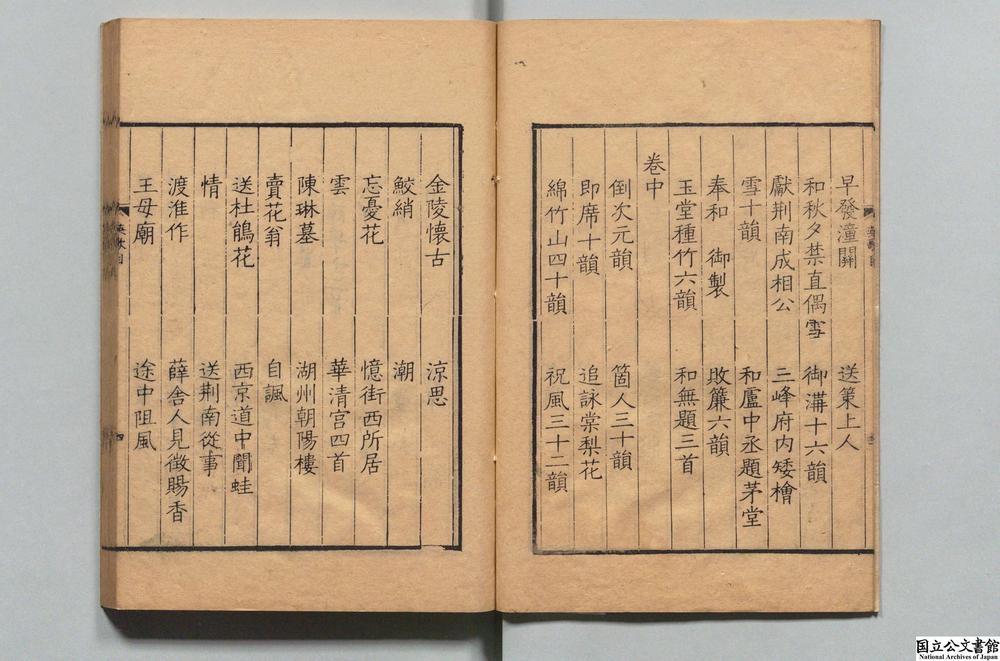 早發潼關　送策上人
和秋夕禁直偶雪　御溝十六韻
獻荆南成相公　三峰府内矮檜
雪十韻　和盧中丞題茅堂
奉和　御製　敗簾六韻
玉堂種竹六韻　和無題三首
卷中
倒次元韻　箇人三十韻
即席十韻　追詠棠梨花
綿竹山四十韻　祝風三十二韻
金陵懷古　涼思
鮫綃　潮
忘憂花　憶街西所居
雲　華清宮四首
陳琳墓　湖州朝陽樓
賣花翁　自諷
送杜鵑花　西京道中聞蛙
情　送荆南從事
渡淮作　薛舍人見徵賜香
王母廟　途中阻風
四
国立公文書館
National Archives of Japan